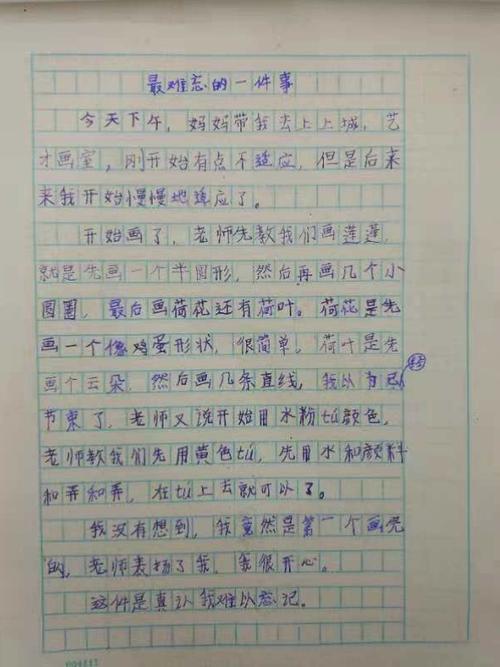 最难忘的一件事
今天下午，妈妈带我去上上城，艺
才画室，刚开始有点不适应，但是后来
来我开始慢慢地适应了。
开始画了，老师先教我们画莲蓬，
就是先画一个半圆形，然后再画几个小
圆圈，最后画荷花还有荷叶。荷花是先
画一个像鸡蛋形状，很简单，荷叶是先
画个云朵，然后画几条直线，我以为已
经
节束了，老师又说开始用水粉tú颜色，
老师教我们先用黄色tú，先用水和颜料
和弄和弄，在tú上去就可以了。
我没有想到，我竟然是第一个画完
的，老师表扬了我，我很开心。
这件是真认我难以忘记。